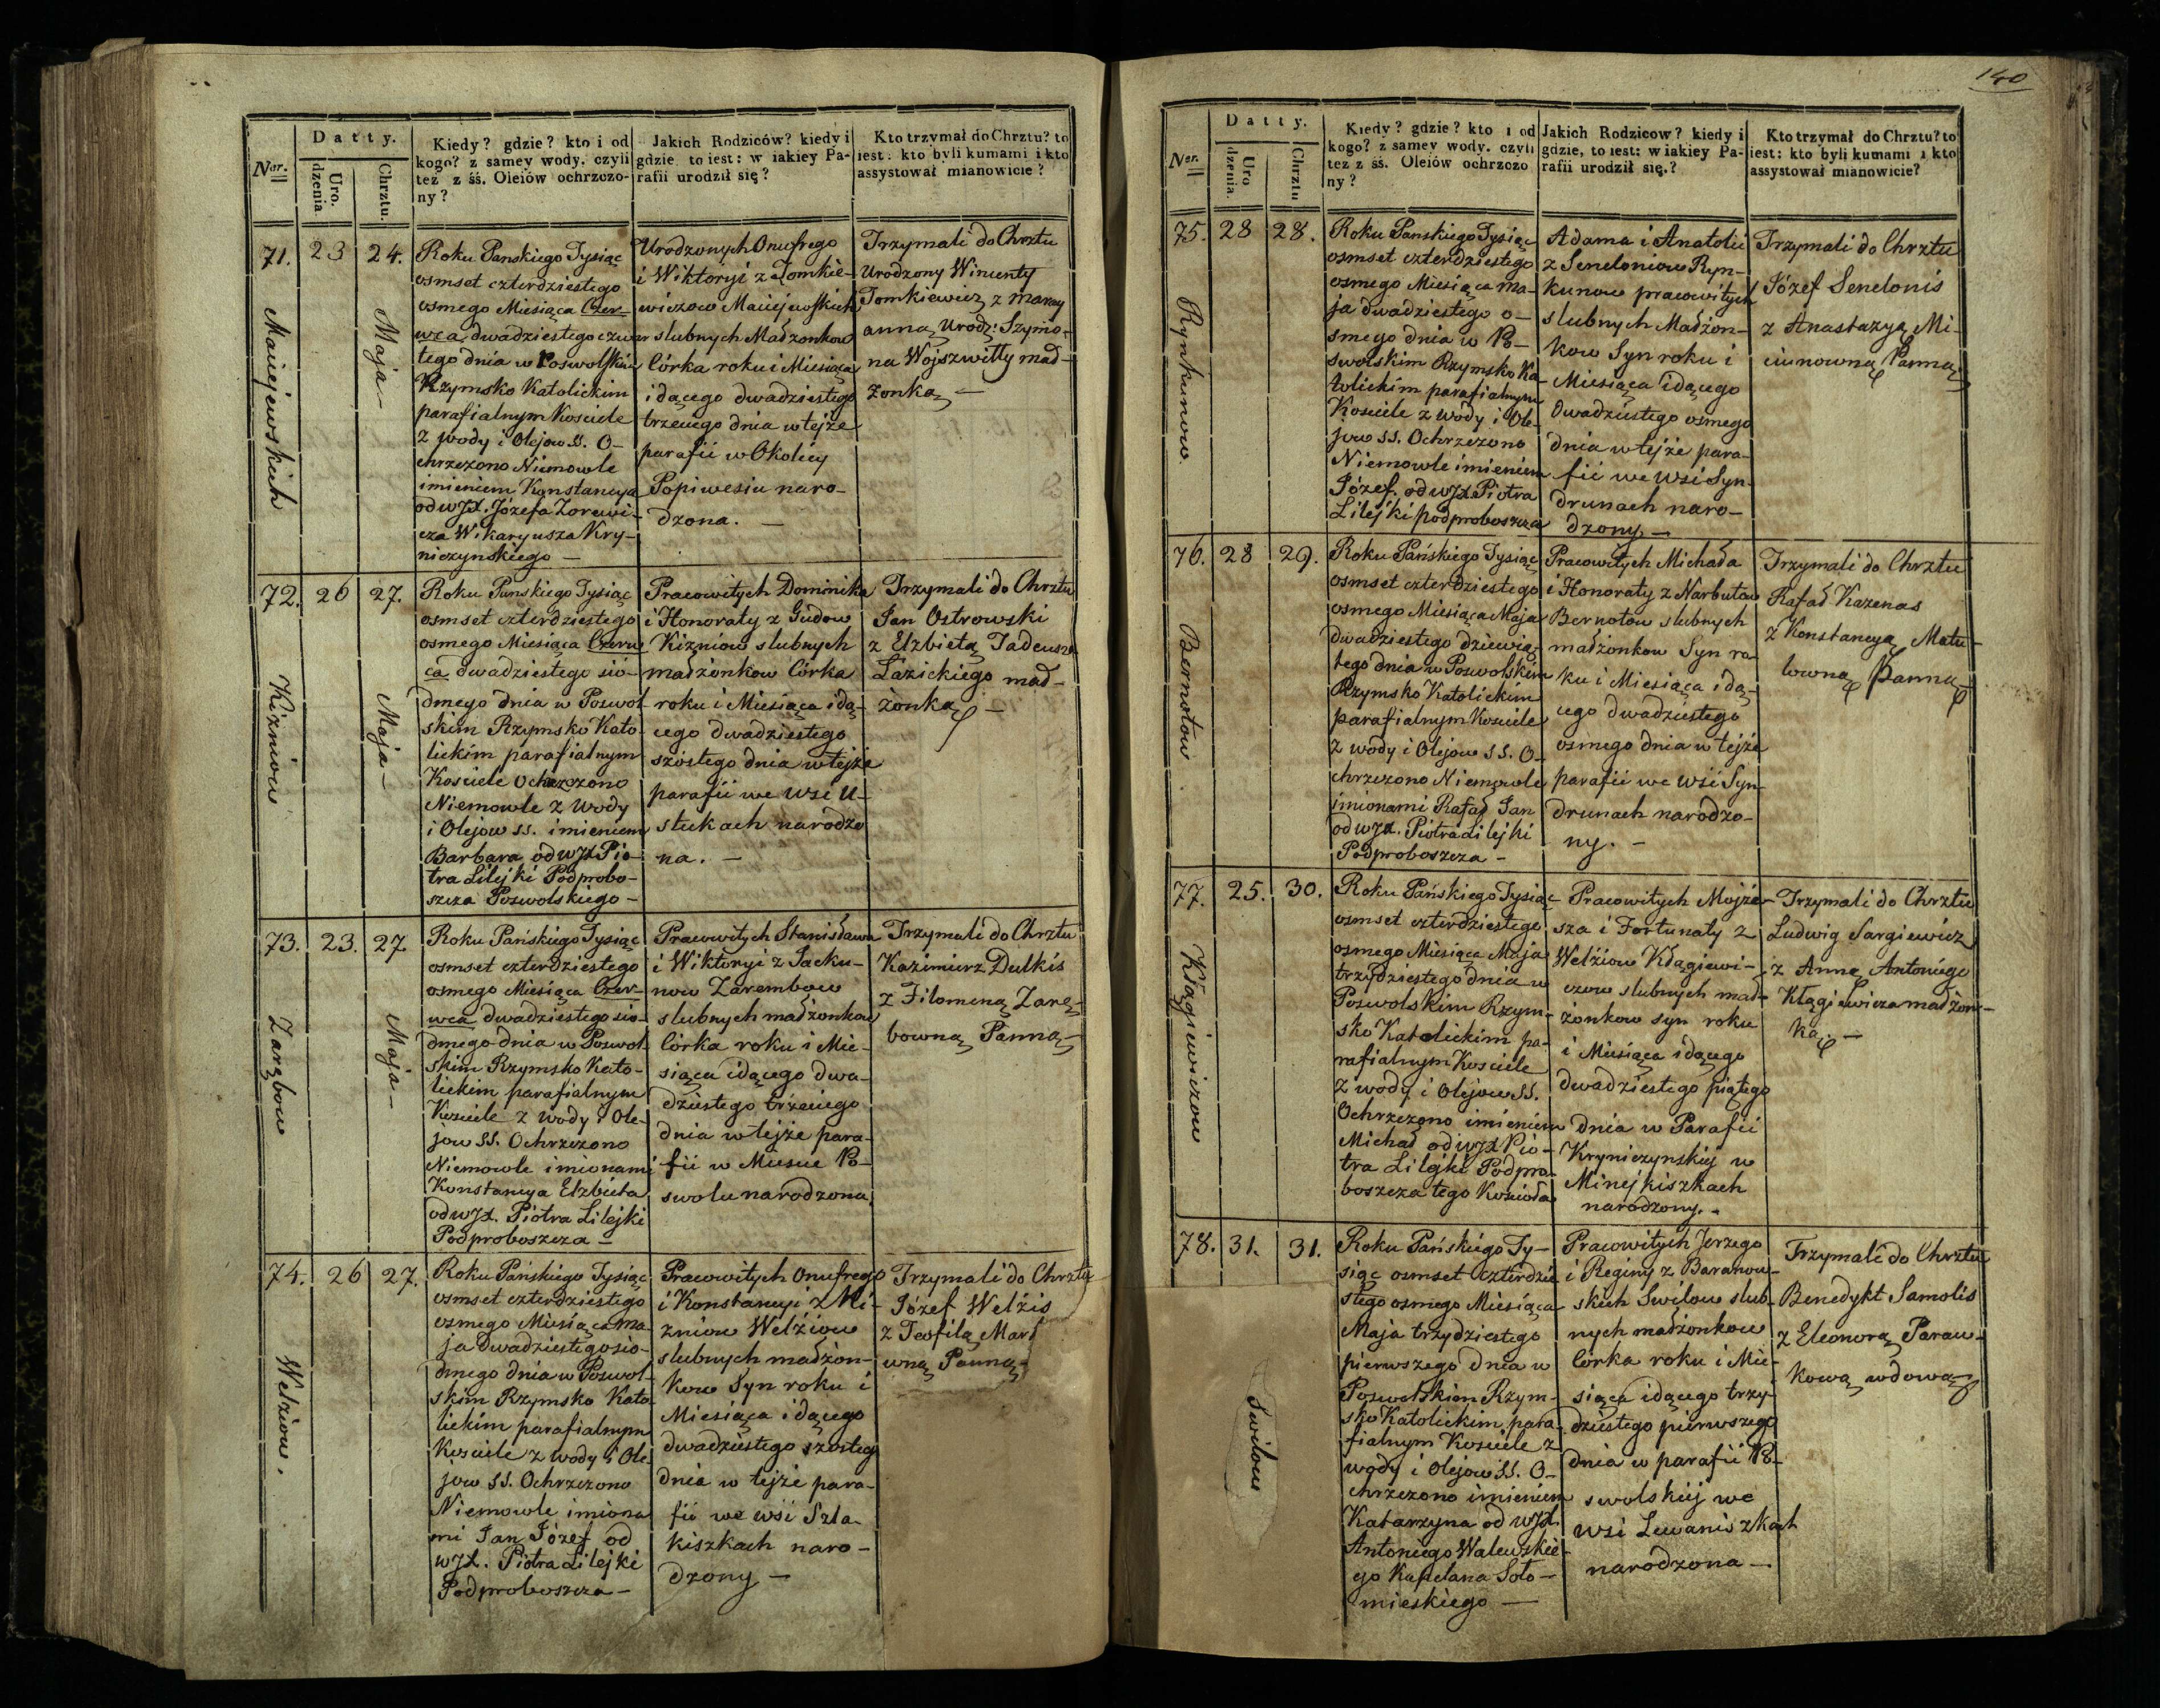 140
Datty.
Ner.
Uro.
dzenia
Chrztu.
Kiedy? gdzie? kto i od
kogo? z samey wody, czyli
też z śś. Oleiów ochrzczo-
ny?
Jakich Rodziców? kiedy i
gdzie, to iest: w iakiey Pa-
rafii urodził się?
Kto trzymał do Chrztu? to
iest: kto byli kumami i kto
assystował mianowicie?
71.
23
24.
Maciejewskich
Maja –
Roku Panskiego Tysiąc
osmset czterdziestego
osmego Miesiąca Czer-
wca dwadziestego czwar
tego dnia w Poswolskim
Rzymsko Katolickim
parafialnym Kosciele
z wody i Olejow SS. O-
chrzczono Niemowle
imieniem Konstancya
od WJX. Józefa Zorawi-
cza Wikaryusza Kry-
niczynskiego –
Urodzonych Onufrego
i Wiktoryi z Tomkie-
wiczow Maciejewskich
slubnych Małżonkow
Córka roku i Miesiąca
idącego dwadziestego
trzeciego dnia w tejże
parafii w Okolicy
Popiwesiu naro-
dzona. –
Trzymali do Chrztu
Urodzony Wincenty
Tomkiewicz z Mary
anną Urodz: Szymo-
na Wojszwiłły mał-
żonką –
72.
26
27.
Kiżniow
Maja –
Roku Panskiego Tysiąc
osmset czterdziestego
osmego Miesiąca Czerw
ca dwadziestego sió-
dmego dnia w Poswol
skim Rzymsko Kato-
lickim parafialnym
Kosciele Ochrzczono
Niemowle z Wody
i Olejow SS. imieniem
Barbara od WJX Pio-
tra Lilejki Podprobo-
szcza Poswolskiego –
Pracowitych Dominika
i Honoraty z Gudow
Kizniow slubnych
małżonkow Córka
roku i Miesiąca idą-
cego dwadziestego
szóstego dnia w tejże
parafii we Wsi U-
stukach narodzo
na. –
Trzymali do Chrztu
Jan Ostrowski
z Elzbietą Tadeusza
Łazickiego mał-
żonką –
73.
23.
27.
Zarąbow
Maja –
Roku Pańskiego Tysiąc
osmset czterdziestego
osmego Miesiąca Czer-
wca dwadziestego sio-
dmego dnia w Poswol-
skim Rzymsko Kato-
lickim parafialnym
Kosciele z Wody i Ole-
jow SS. Ochrzczono
Niemowle imionami
Konstancya Elzbieta
od WJX. Piotra Lilejki
Podproboszcza –
Pracowitych Stanisława
i Wiktoryi z Jacku-
now Zarembow
slubnych małżonkow
Córka roku i Mie-
siąca idącego dwa-
dziestego trzeciego
dnia w tejże para-
fii w Miescie Po-
swolu narodzona
Trzymali do Chrztu
Kazimierz Dulkis
z Filomeną Zarę-
bowną Panną –
74.
26
27.
Welziow.
Roku Pańskiego Tysiąc
osmset czterdziestego
osmego Miesiąca Ma-
ja dwadziestego sio-
dmego dnia w Poswol-
skim Rzymsko Kato
lickim parafialnym
Kosciele z wody i Ole
jow SS. Ochrzczono
Niemowle imiona
mi Jan Józef od
WJX. Piotra Lilejki
Podproboszcza –
Pracowitych Onufrego
i Konstancyi z Ki-
zniow Welżiow
slubnych małżon-
kow Syn roku i
Miesiąca idącego
dwadziestego szosteg
dnia w tejże para-
fii we wsi Szla-
kiszkach naro-
dzony –
Trzymali do Chrztu
Józef Welżis
z Teofilą Mar
wną Panną –
Datty.
Ner.
Uro
dzenia.
Chrztu
Kiedy? gdzie? kto i od
kogo? z samey wody, czyli
też z śś. Oleiów ochrzczo
ny?
Jakich Rodzicow? kiedy i
gdzie, to iest: w iakiey Pa-
rafii urodził się.?
Kto trzymał do Chrztu? to
iest: kto byli kumami i kto
assystował mianowicie?
75.
28
28.
Rynkunow.
Roku Panskiego Tysiąc
osmset czterdziestego
osmego Miesiąca Ma-
ja dwadziestego o-
smego dnia w Po-
swolskim Rzymsko Ka-
tolickim parafialnym
Kosciele z Wody i Ole-
jow SS. Ochrzczono
Niemowle imieniem
Józef od WJX Piotra
Lilejki podproboszcza
Adama i Anatolii
z Seneloniow Ryn-
kunow pracowitych
slubnych Małżon-
kow Syn roku i
Miesiąca idącego
dwadziestego osmego
dnia w tejże para-
fii we wsi Syn-
drunach naro-
dzony –
Trzymali do Chrztu
Józef Senelonis
z Anastazyą Mi-
ciunowną Panną
76.
28
29.
Bernotow
Roku Pańskiego Tysiąc
osmset czterdziestego
osmego Miesiąca Maja
dwadziestego dziewią-
tego dnia w Poswolskim
Rzymsko Katolickim
parafialnym Kosciele
z wody i Olejow SS. O-
chrzczono Niemowle
imionami Rafał Jan
od WJX. Piotra Lilejki
Podproboszcza –
Pracowitych Michała
i Honoraty z Narbutow
Bernotow slubnych
małżonkow Syn ro-
ku i Miesiąca idą-
cego dwadziestego
osmego dnia w tejże
parafii we wsi Syn-
drunach narodzo-
ny. –
Trzymali do Chrztu
Rafał Kazenas
z Konstancyą Matu-
lowną Panną
77.
25.
30.
Kłągiewiczow
Roku Pańskiego Tysiąc
osmset czterdziestego
osmego Miesiąca Maja
trzydziestego dnia w
Poswolskim Rzym-
sko Katolickim pa-
rafialnym Kosciele
z wody i Olejow SS.
Ochrzczono imieniem
Michał od WJX Pio-
tra Lilejki Podpro-
boszcza tego Kościoła
Pracowitych Mojże-
sza i Fortunaty z
Welżiow Kłągiewi-
czow slubnych mał-
żonkow syn roku
i Miesiąca idącego
dwadziestego piątego
dnia w Parafii
Kryniczynskiej w
Minejkiszkach
narodzony. –
Trzymali do Chrztu
Ludwig Sargiewicz
z Anną Antoniego
Kłągiewicza małżon-
ką –
78.
31.
31.
Swilow
Roku Pańskiego Ty-
siąc osmset czterdzie
stego osmego Miesiąca
Maja trzydziestego
pierwszego dnia w
Poswolskim Rzym-
sko Katolickim para-
fialnym Kosciele z
wody i Olejow SS. O-
chrzczono imieniem
Katarzyna od WJX.
Antoniego Walewskie-
go Kapelana Soło-
mieskiego –
Pracowitych Jerzego
i Reginy z Baranow-
skich Swilow slub-
nych małżonkow
Córka roku i Mie-
siąca idącego trzy-
dziestego pierwszego
dnia w parafii Po-
swolskiej we
wsi Lewaniszkach
narodzona –
Trzymali do Chrztu
Benedykt Samolis
z Eleonorą Paraw-
kową wdową